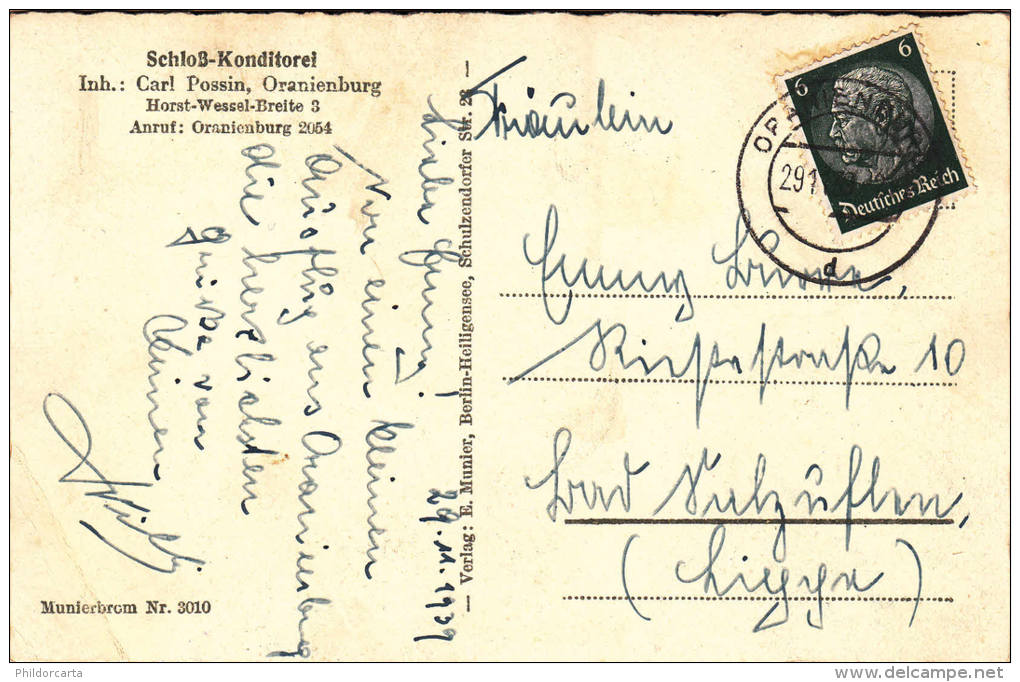 Schloß-Konditorei
Inh.: Carl Possin, Oranienburg
Horst-Wessel-Breite 3
Anruf: Oranienburg 2054
29.11.1939
Liebe Emmy!
Von einem kleinen
Ausflug aus Oranienburg
die herzlichsten
Grüße von
Deinem
Willi
Munierbrom Nr. 3010
— Verlag: E. Munier, Berlin-Heiligensee, Schulzendorfer Str. 26 —
Fräulein
Emmy
straße 10
Bad Salzuflen,
(Lippe)
6
6
Deutsches Reich
d
Phildorcarta
www.delcampe.net